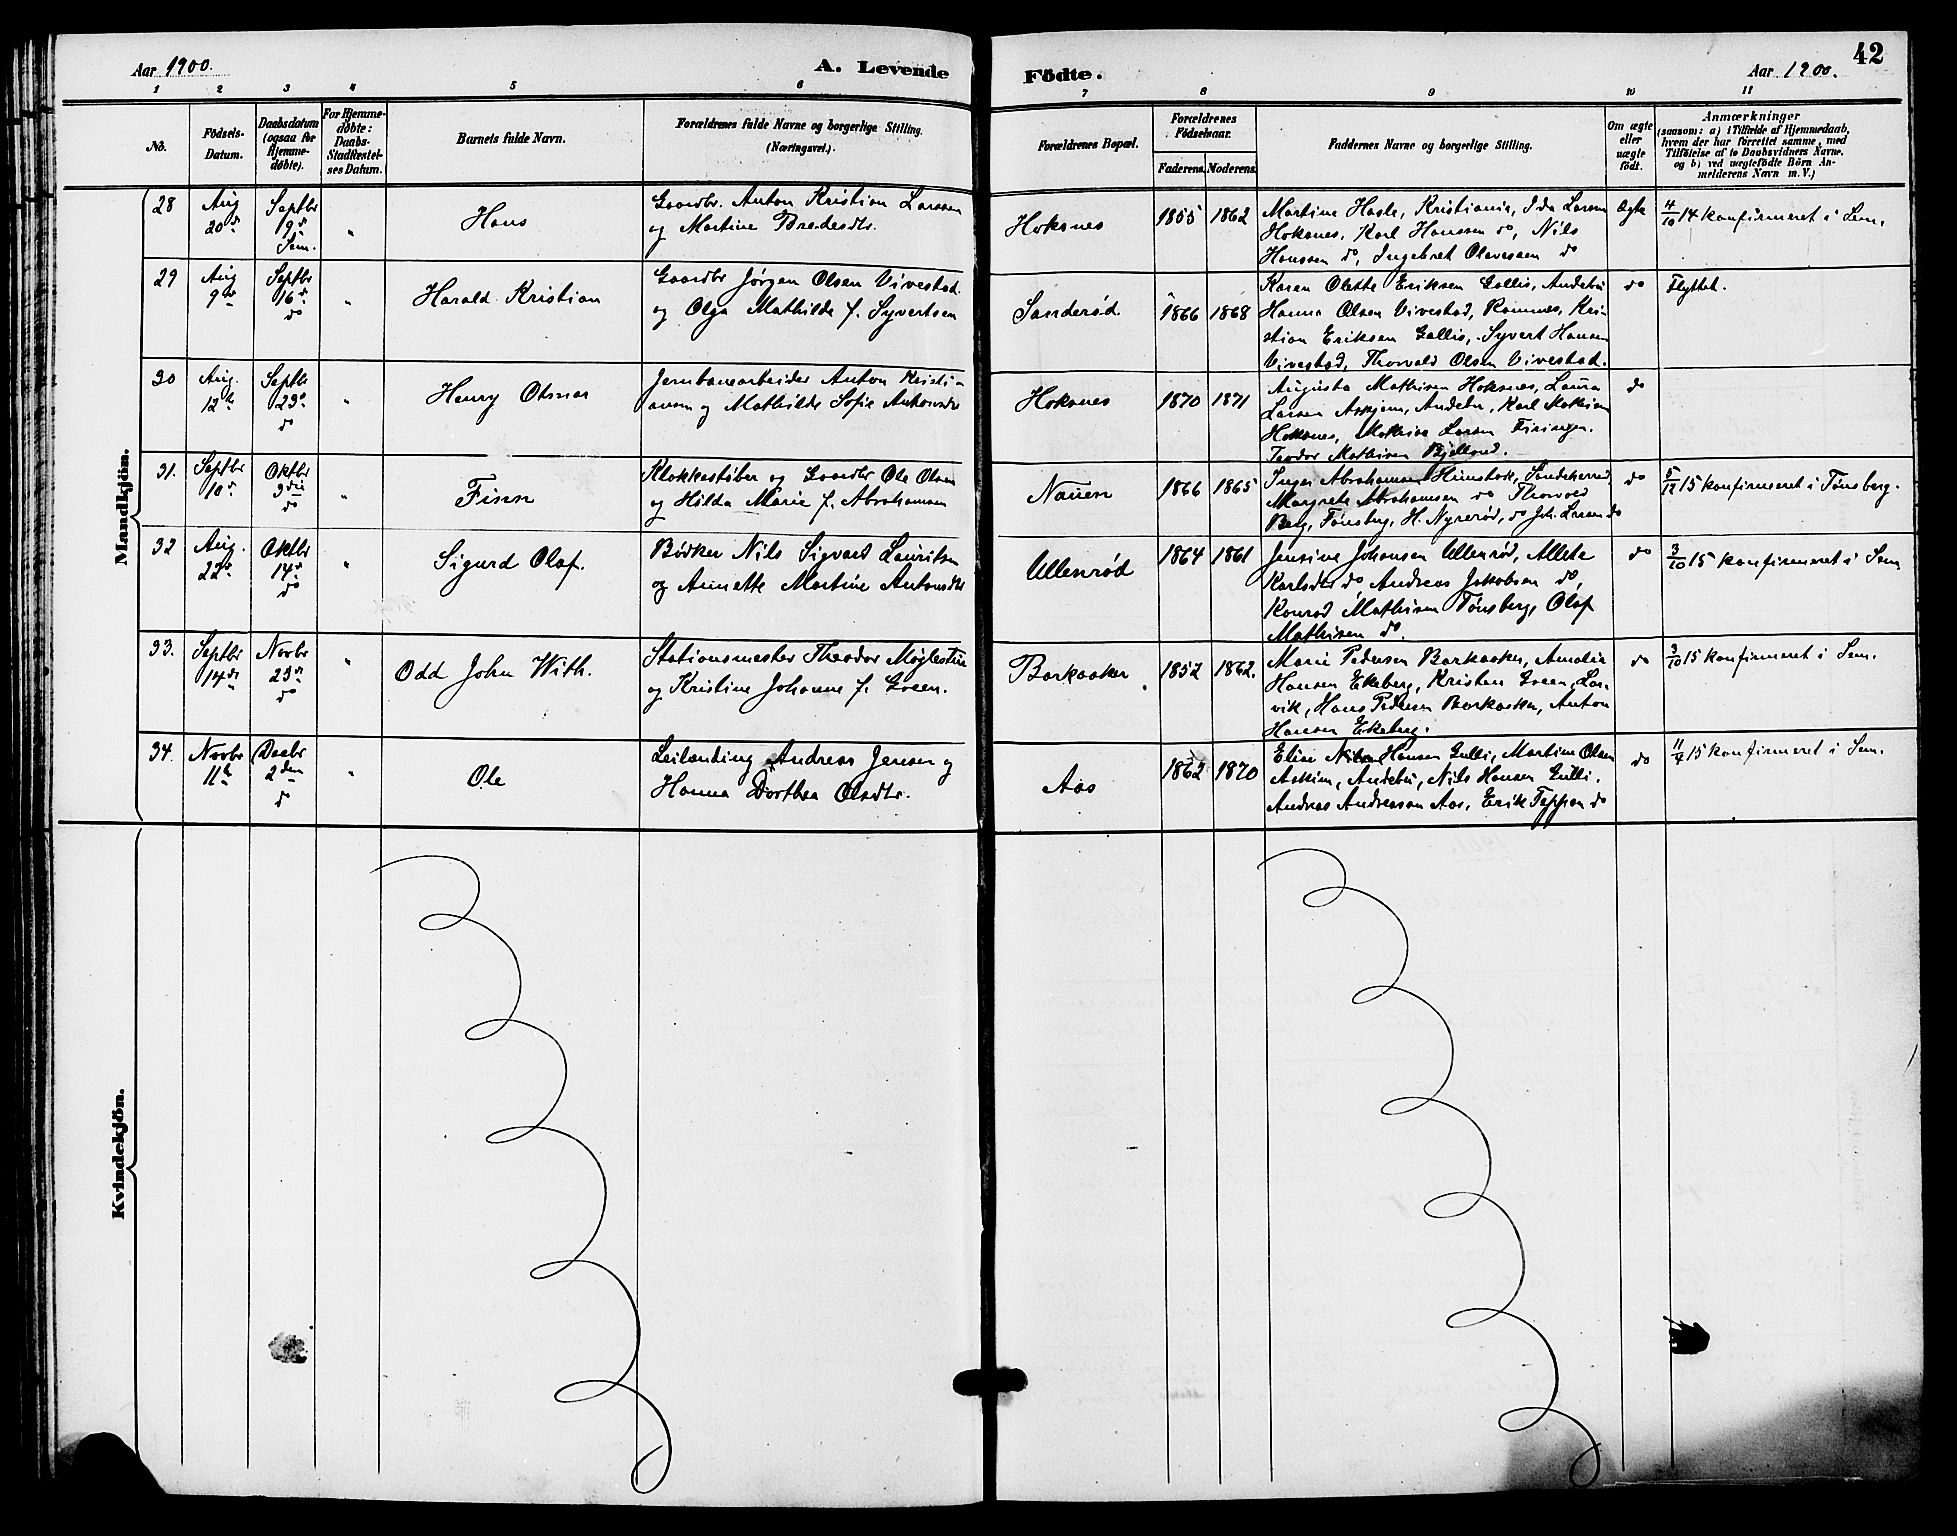 42
Aar 1900.
A. Levende
Födte.
Aar 1900.
1 2 3 4 5 6 7 8 9 10 11
No.
Födsels-
Datum.
Daabsdatum
(ogsaa for
Hjemme-
døbte).
For Hjemme-
døbte:
Daabs-
Stadfæstel-
ses Datum.
Barnets fulde Navn.
Forældrenes fulde Navne og borgerlige Stilling.
(Næringsvei.)
Forældrenes Bopæl.
Forældrenes
Fødselsaar.
Faderens.
Moderens.
Faddernes Navne og borgerlige Stilling.
Om ægte
eller
uægte
født.
Anmærkninger
(saasom: a) i Tilfælde af Hjemmedaab,
hvem der har forrettet samme, med
Tilföielse af to Daabsvidners Navne,
og b) ved uægtefödte Börn An-
melderens Navn m. V.)
Mandkjön.
28
Aug
20d
Septbr
9d
Sem.
"
Hans
Gaardbr. Anton Kristian Larssen
og Martine Bredesdtr.
Hoksnes
1855
1862
Martine Hasle, Kristiania, Ida Larsen
Hoksnes, Karl Hanssen do, Nils
Hanssen do, Ingebret Olavessen do
Ægte
4/10 14 konfirmeret i Sem.
29
Aug
9de
Septbr
16d
do
"
Harald Kristian
Gaardbr Jørgen Olsen Vivestad
og Olga Mathilde f. Syvertsen
Sanderød.
1866
1868
Karen Olette Eriksen Gallis, Andebu
Hanna Olsen Vivestad, Ramnes, Kri-
stian Eriksen Gallis, Syvert Hansen
Vivestad, Thorvald Olsen Vivestad.
do
Flyttet.
30
Aug.
12te
Septbr
23d
do
"
Henry Otmar
Jernbanearbeider Anton Kristi-
ansen og Mathilde Sofie Antonsdtr
Hoksnes
1870
1871
Augusta Mathisen Hoksnes, Laura
Larsen Askjem, Andebu, Karl Mathisen
Hoksnes, Mathias Larsen
Teodor Mathisen
do
31.
Septbr
10d
Oktbr
3die
do
"
Finn
Klokkestøber og Gaardbr Ole Olsen
og Hilda Marie f. Abrahamsen
Nauen
1866
1865
Inger Abrahamsen Himstok, Sandeherred
Margrete Abrahamsen do Thorvald
Berg, Tønsberg, H. Nyrerød, do Joh. Larsen do
do
5/12 15 konfirmeret i Tønsberg.
32
Aug.
22d
Oktbr
14d
do
"
Sigurd Olaf.
Bødker Nils Sigvard Lauritsen
og Annette Martine Antonsdtr
Ullenrød
1864
1861
Jensine Johansen Ullenrød, Allete
Karlsdtr do Andreas Jakobsen do,
Konrad Mathisen Tønsberg, Olaf
Mathisen do.
do
3/10 15 konfirmeret i Sem
33.
Septbr
14de
Novbr
25d
do
"
Odd John With.
Stationsmester Theodor Møglestue
og Kristine Johanne f. Green.
Barkaaker
1852
1862.
Marie Pedersen Barkaaker, Amalie
Hansen Ekeberg, Kristen Green, Lar-
vik, Hans Pedersen Barkaaker, Anton
Hansen Ekeberg.
do
3/10 15 konfirmeret i Sem.
34.
Novbr
11te
Decbr
2den
do
"
Ole
Leilænding Andreas Jensen og
Hanna Dorthea Olsdtr.
Aas
1862
1870
Elise Hansen Gulli, Martine Olsen
Askim, Andebu, Nils Hansen Gulli.
Andreas Andreassen Aas, Erik Teppen do
do
11/4 15 konfirmeret i Sem.
Kvindekjön.